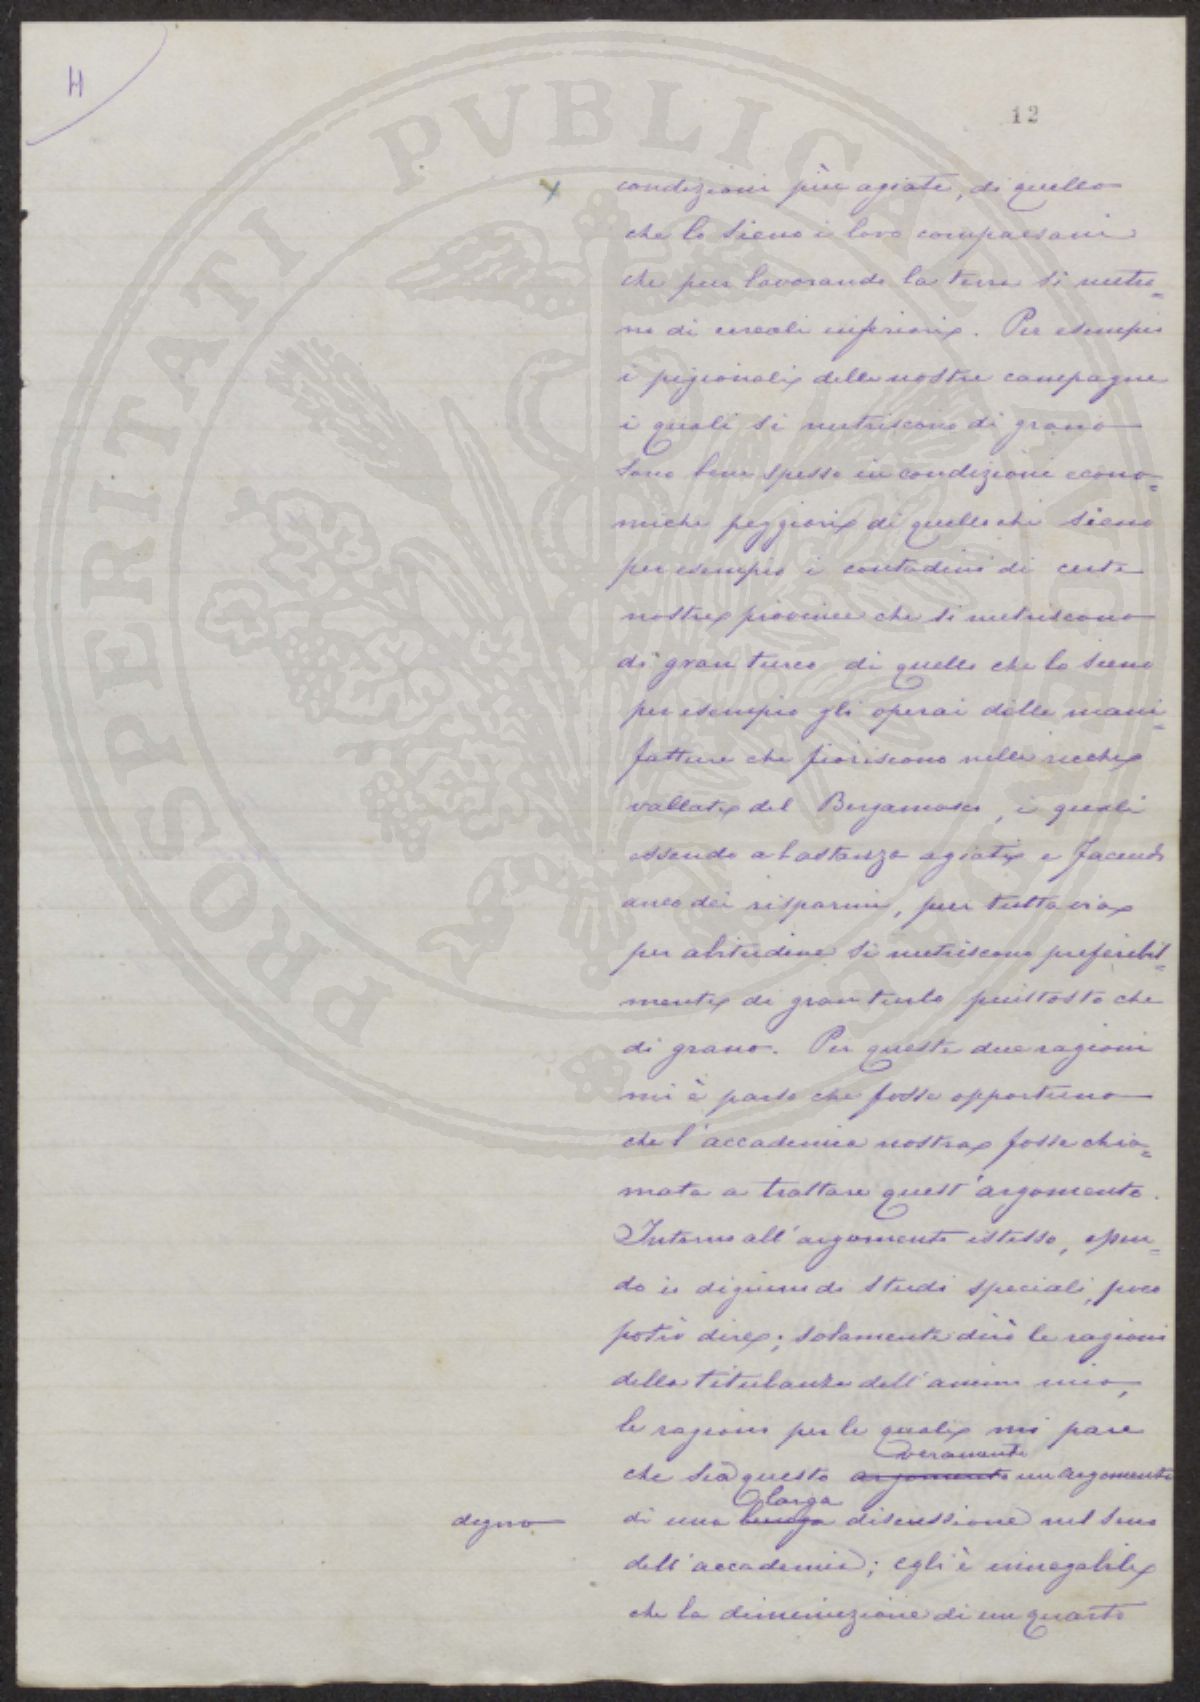 H
12
condizioni più agiate, di quello
che lo sieno i loro compaesani
che pur lavorando la terra si nutro=
no di cereali inferiori. Per esempio
i pigionali delle nostre campagne
i quali si nutriscono di grano
sono bene spesso in condizioni econo=
miche peggiori di quello che sieno
per esempio i contadini di certe
nostre provincie che si nutriscono
di gran turco di quello che lo sieno
per esempio gli operai delle mani=
fatture che fioriscono nelle ricche
vallate del Bergamosco, i quali
essendo abastanza agiati e facendo
anco dei risparmi, pur tuttavia
per abitudine si nutriscono preferibil=
mente di gran turco piuttosto che
di grano. Per queste due ragioni
mi è parso che fosse opportuno
che l'accademia nostra fosse chia=
mata a trattare quest'argomento.
Intorno all'argomento istesso, essen=
do io digiuno di studi speciali, poco
potrò dire; solamente dirò le ragioni
della titubanza dell'animo mio,
le ragioni per le quali mi pare
veramente
che sia questo argomento un argomento
larga
degno di una lunga discussione nel seno
dell'accademia; egli è innegabile
che la diminuzione di un quarto
PROSPERITATI PVBLICAE